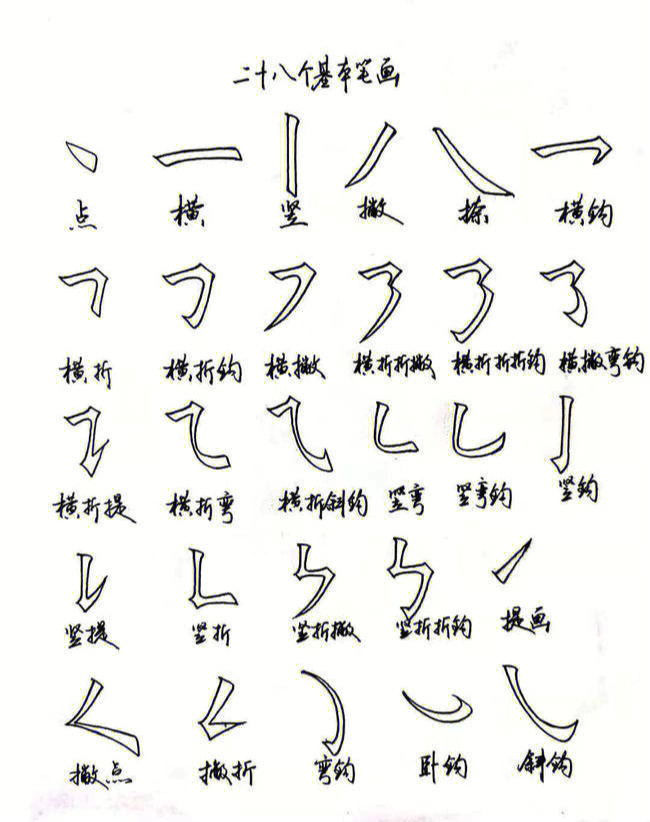 二十八个基本笔画
点 横 竖 撇 捺 横钩
横折 横折钩 横撇 横折折撇 横折折折钩 横撇弯钩
横折提 横折弯 横折斜钩 竖弯 竖弯钩 竖钩
竖提 竖折 竖折撇 竖折折钩 提画
撇点 撇折 弯钩 卧钩 斜钩